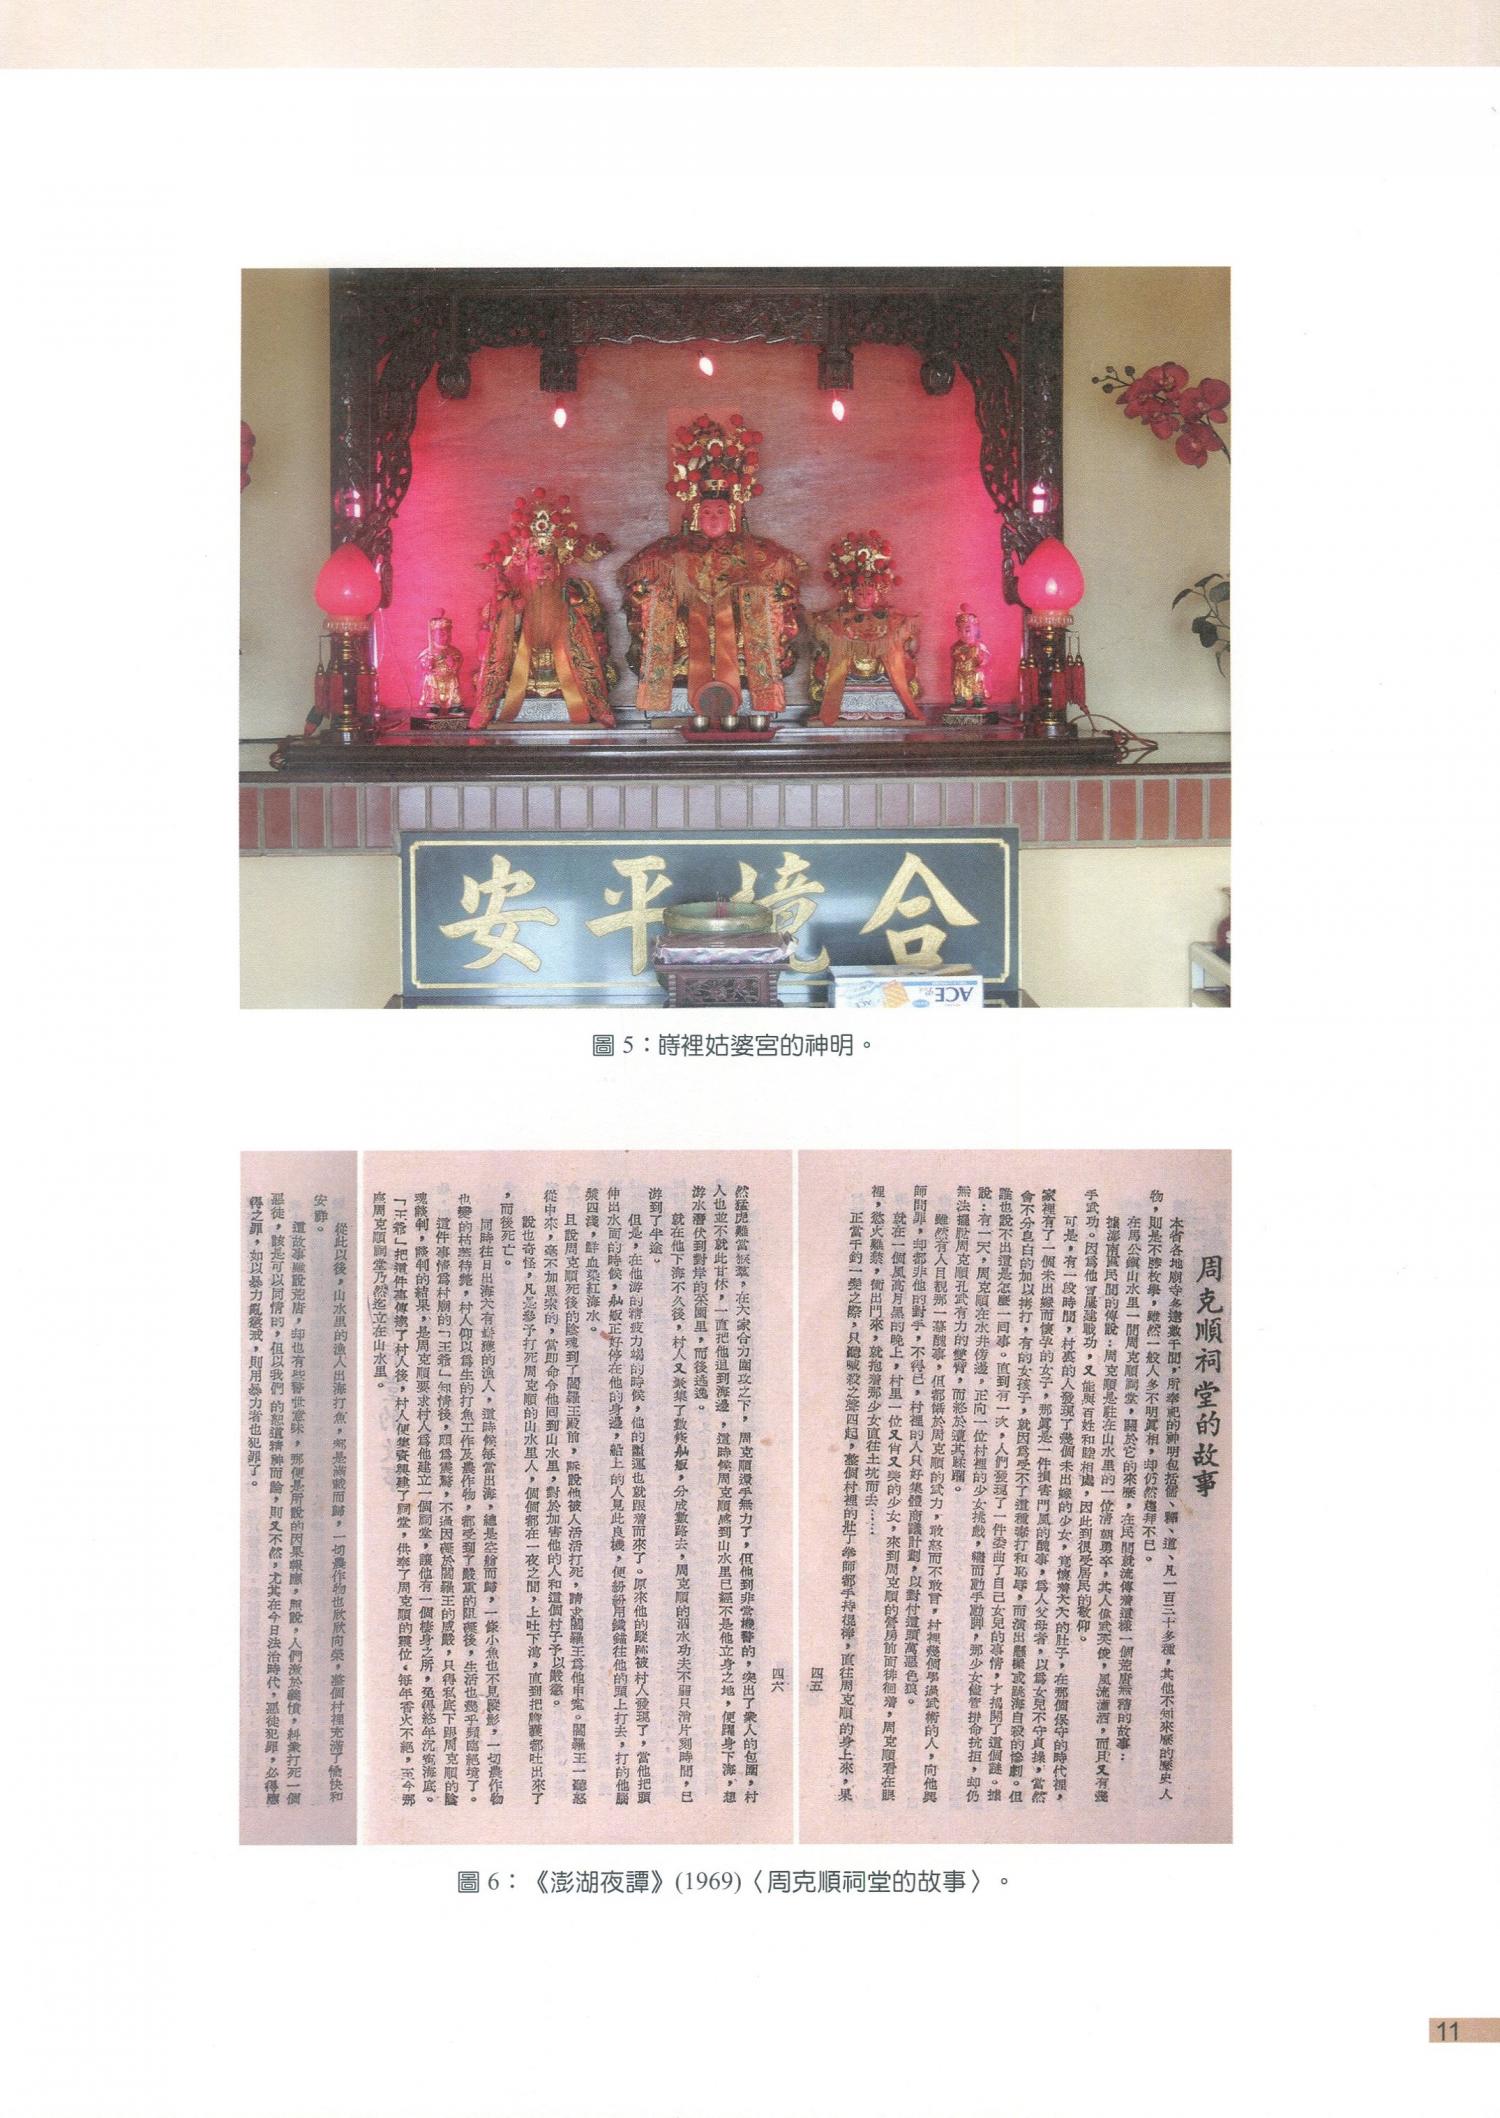 合境平安
ACE
圖 5：嵵裡姑婆宮的神明。
周克順祠堂的故事
本省各地廟寺多達數千間，所奉祀的神明包括儒、釋、道、凡一百三十多種，其他不知來歷的歷史人
物，則是不勝枚舉，雖然一般人多不明眞相，却仍然趨拜不已。
在馬公鎭山水里一間周克順祠堂，關於它的來歷，在民間就流傳着這樣一個荒唐無稽的故事：
據澎南區民間的傳說：周克順是駐在山水里的一位清朝勇卒，其人偉武英俊，風流瀟洒，而且又有幾
手武功。因爲他曾屢建戰功，又能與百姓和睦相處，因此到很受居民的敬仰。
可是，有一段時間，村裏的人發現了幾個未出嫁的少女，竟懷着大大的肚子，在那個保守的時代裡，
家裡有了一個未出嫁而懷孕的女子，那眞是一件損害門風的醜事，爲人父母者，以爲女兒不守貞操，當然
會不分皂白的加以拷打，有的女孩子，就因爲受不了這種毒打和恥辱，而演出懸樑或跳海自殺的慘劇。但
誰也說不出這是怎麼一回事。直到有一次，人們發現了一件委曲了自己女兒的事情，才揭開了這個謎。據
說：有一天，周克順在水井傍邊，正向一位村裡的少女挑戲，繼而動手動脚，那少女儘管拼命抗拒，却仍
無法擺脫周克順孔武有力的雙臂，而終於遭其蹂躪。
雖然有人目覩那一幕醜事，但都懾於周克順的武力，敢怒而不敢言，村裡幾個學過武術的人，向他興
師問罪，却都非他的對手，不得已，村裡的人只好集體商議計劃，以對付這頭萬惡色狼。
就在一個風高月黑的晚上，村里一位又肖又美的少女，來到周克順的營房前面徘徊着，周克順看在眼
裡，慾火難禁，衝出門來，就抱着那少女直往土坑而去……
正當千鈞一髮之際，只聽喊殺之聲四起，整個村裡的壯丁拳師都手持棍棒，直往周克順的身上來，果
四五
四六
然猛虎難當猴羣，在大家合力圍攻之下，周克順還手無力了，但他到非常機警的，突出了衆人的包圍，村
人也並不就此甘休，一直把他追到海邊，這時候周克順感到山水里已經不是他立身之地，便躍身下海，想
游水潛伏到對岸的菜園里，而後逃逸。
就在他下海不久後，村人又聚集了數條舢舨，分成數路去，周克順的泅水功夫不弱只消片刻時間，已
游到了半途。
但是，在他游的精疲力竭的時候，他的噩運也就跟着而來了。原來他的蹤跡被村人發現了，當他把頭
伸出水面的時候，舢舨正好停在他的身邊，船上的人見此良機，便紛紛用鐵錨往他的頭上打去，打的他腦
漿四濺，鮮血染紅海水。
且說周克順死後的陰魂到了閻羅王殿前，訴說他被人活活打死，請求閻羅王爲他申寃。閻羅王一聽怒
從中來，毫不加思索的，當即命令他回到山水里，對於加害他的人和這個村子予以嚴懲。
說也奇怪，凡是參予打死周克順的山水里人，個個都在一夜之間，上吐下瀉，直到把膽濃都吐出來了
，而後死亡。
同時往日出海大有斬穫的漁人，這時候每當出海，總是空艙而歸，一條小魚也不見蹤影，一切農作物
也變的枯萎待斃，村人仰以爲生的打魚工作及農作物，都受到了嚴重的阻礙後，生活也幾乎頻臨絕境了。
這件事情爲村廟的「王爺」知情後，頗爲震驚，不過因礙於閻羅王的威嚴，只得私底下跟周克順的陰
魂談判，談判的結果，是周克順要求村人爲他建立一個祠堂，讓他有一個棲身之所，免得終年沉寃海底。
「王爺」把這件事傳達了村人後，村人便集資興建了祠堂，供奉了周克順的靈位，每年香火不絕，至今那
座周克順祠堂乃然迄立在山水里。
從此以後，山水里的漁人出海打魚，都是滿載而歸，一切農作物也欣欣向榮，整個村裡充滿了愉快和
安詳。
這故事雖說荒唐，却也有些警世意味，那便是所說的因果報應，照說，人們激於義憤，糾衆打死一個
惡徒，該是可以同情的，但以我們的恕道精神而論，則又不然，尤其在今日法治時代，惡徒犯罪，必得應
得之罪，如以暴力亂懲戒，則用暴力者也犯罪了。
圖 6：《澎湖夜譚》(1969)〈周克順祠堂的故事〉。
11